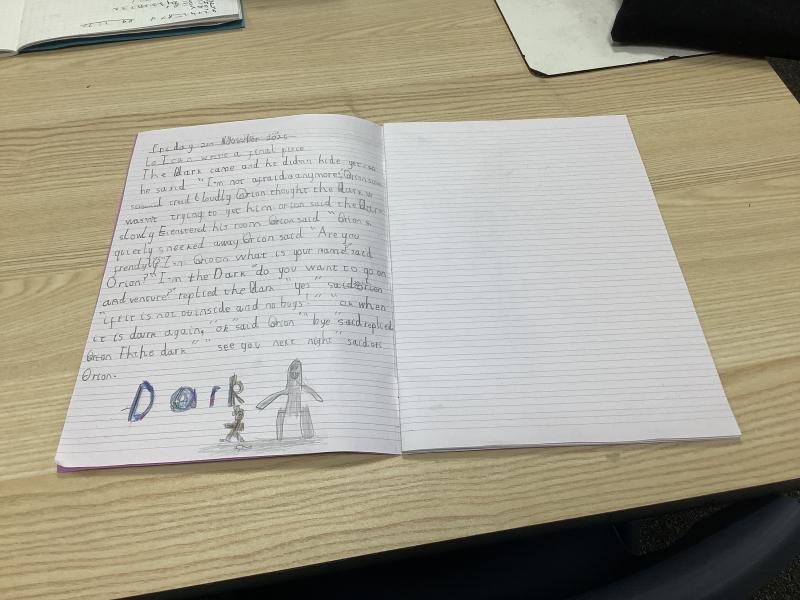 Friday 21st November 2025
Lo I can write a final piece
The Dark came and he didnn hide
he said "I'm not afraid anymore" Orion
cried bloudly Orion thought the Dark
wasn't trying to get him. orion said the Dark
slowly Eenstered his room Orion said "Orion
quietly sneeked away Orion said "Are you
frendyly? I'm Orion what is your name" said
Orion?" "I'm the Dark "do you want to go on
andventure?" replied the Dark "yes" said Orion
"if it is not ouinside and no bugs!" "ok when
it is dark again," "ok" said Orion "bye" said replied
Orion the dark" "see you next night" said
Orion.
Dark